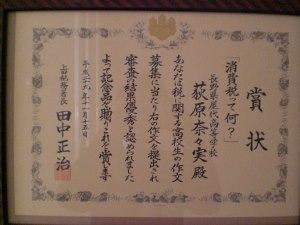 賞状
「消費税って何?」
長野県屋代高等学校
荻原奈々実殿
あなたは税に関する高校生の作文
募集に当たり右の作文を提出され
審査の結果優秀と認められました
よって記念品を贈りこれを賞します
平成二十九年十一月十五日
上田税務署長
田中正治